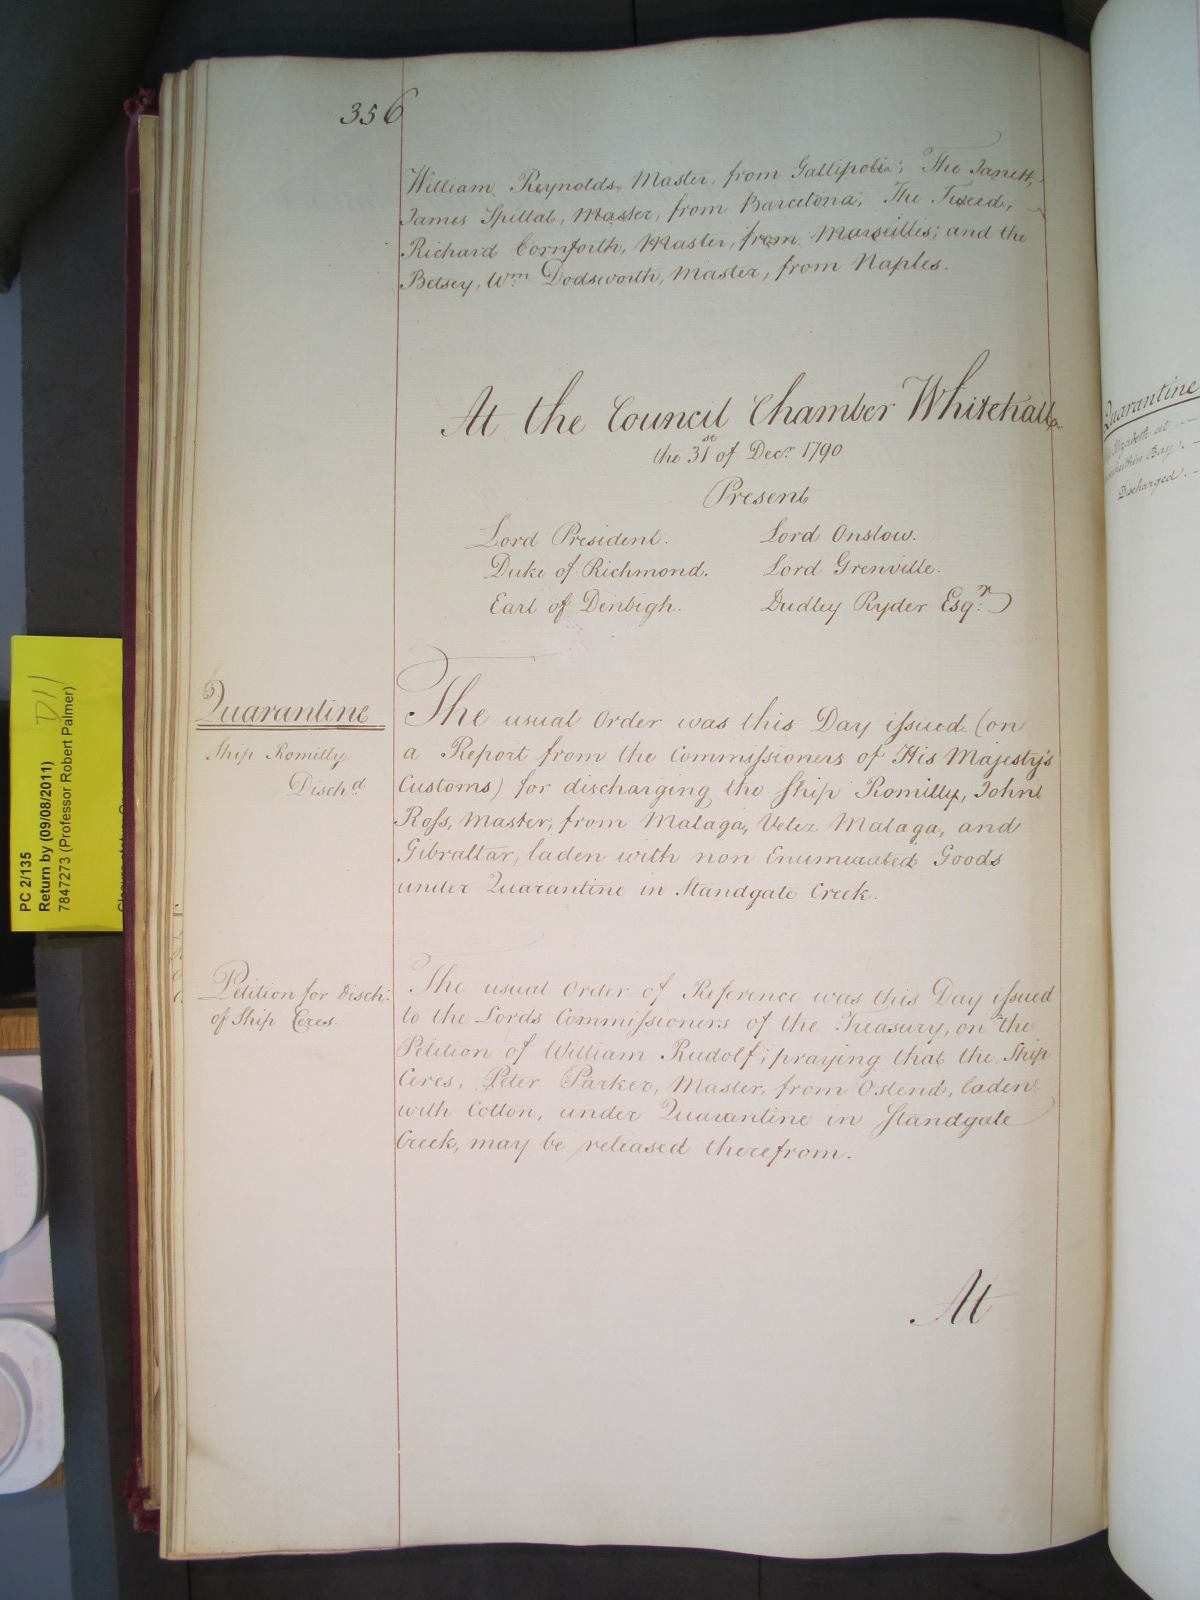 356
William Reynolds, Master, from Gallipoli; The Janett,
James Spittal, Master, from Barcelona; The Tweed,
Richard Cornforth, Master, from Marseilles; and the
Betsey, Wm Dodsworth, Master, from Naples.
At the Council Chamber Whitehall
the 31st of Decr. 1790
Present
Lord President. Lord Onslow.
Duke of Richmond. Lord Grenville.
Earl of Denbigh. Dudley Ryder Esqr.
Quarantine
Ship Romilly
Dischd
The usual Order was this Day issued (on
a Report from the Commissioners of His Majesty's
Customs) for discharging the Ship Romilly, John
Ross, Master, from Malaga, Velez Malaga, and
Gibraltar, laden with non Enumerated Goods
under Quarantine in Standgate Creek.
Petition for Disch:
of Ship Ceres.
The usual Order of Reference was this Day issued
to the Lords Commissioners of the Treasury, on the
Petition of William Rudolf; praying that the Ship
Ceres, Peter Parker, Master, from Ostend, laden
with Cotton, under Quarantine in Standgate
Creek, may be released therefrom.
At
PC 2/135
Return by (09/08/2011)
7847273 (Professor Robert Palmer)
D11
Quarantine
Elizabeth at
Bay.
Discharged.